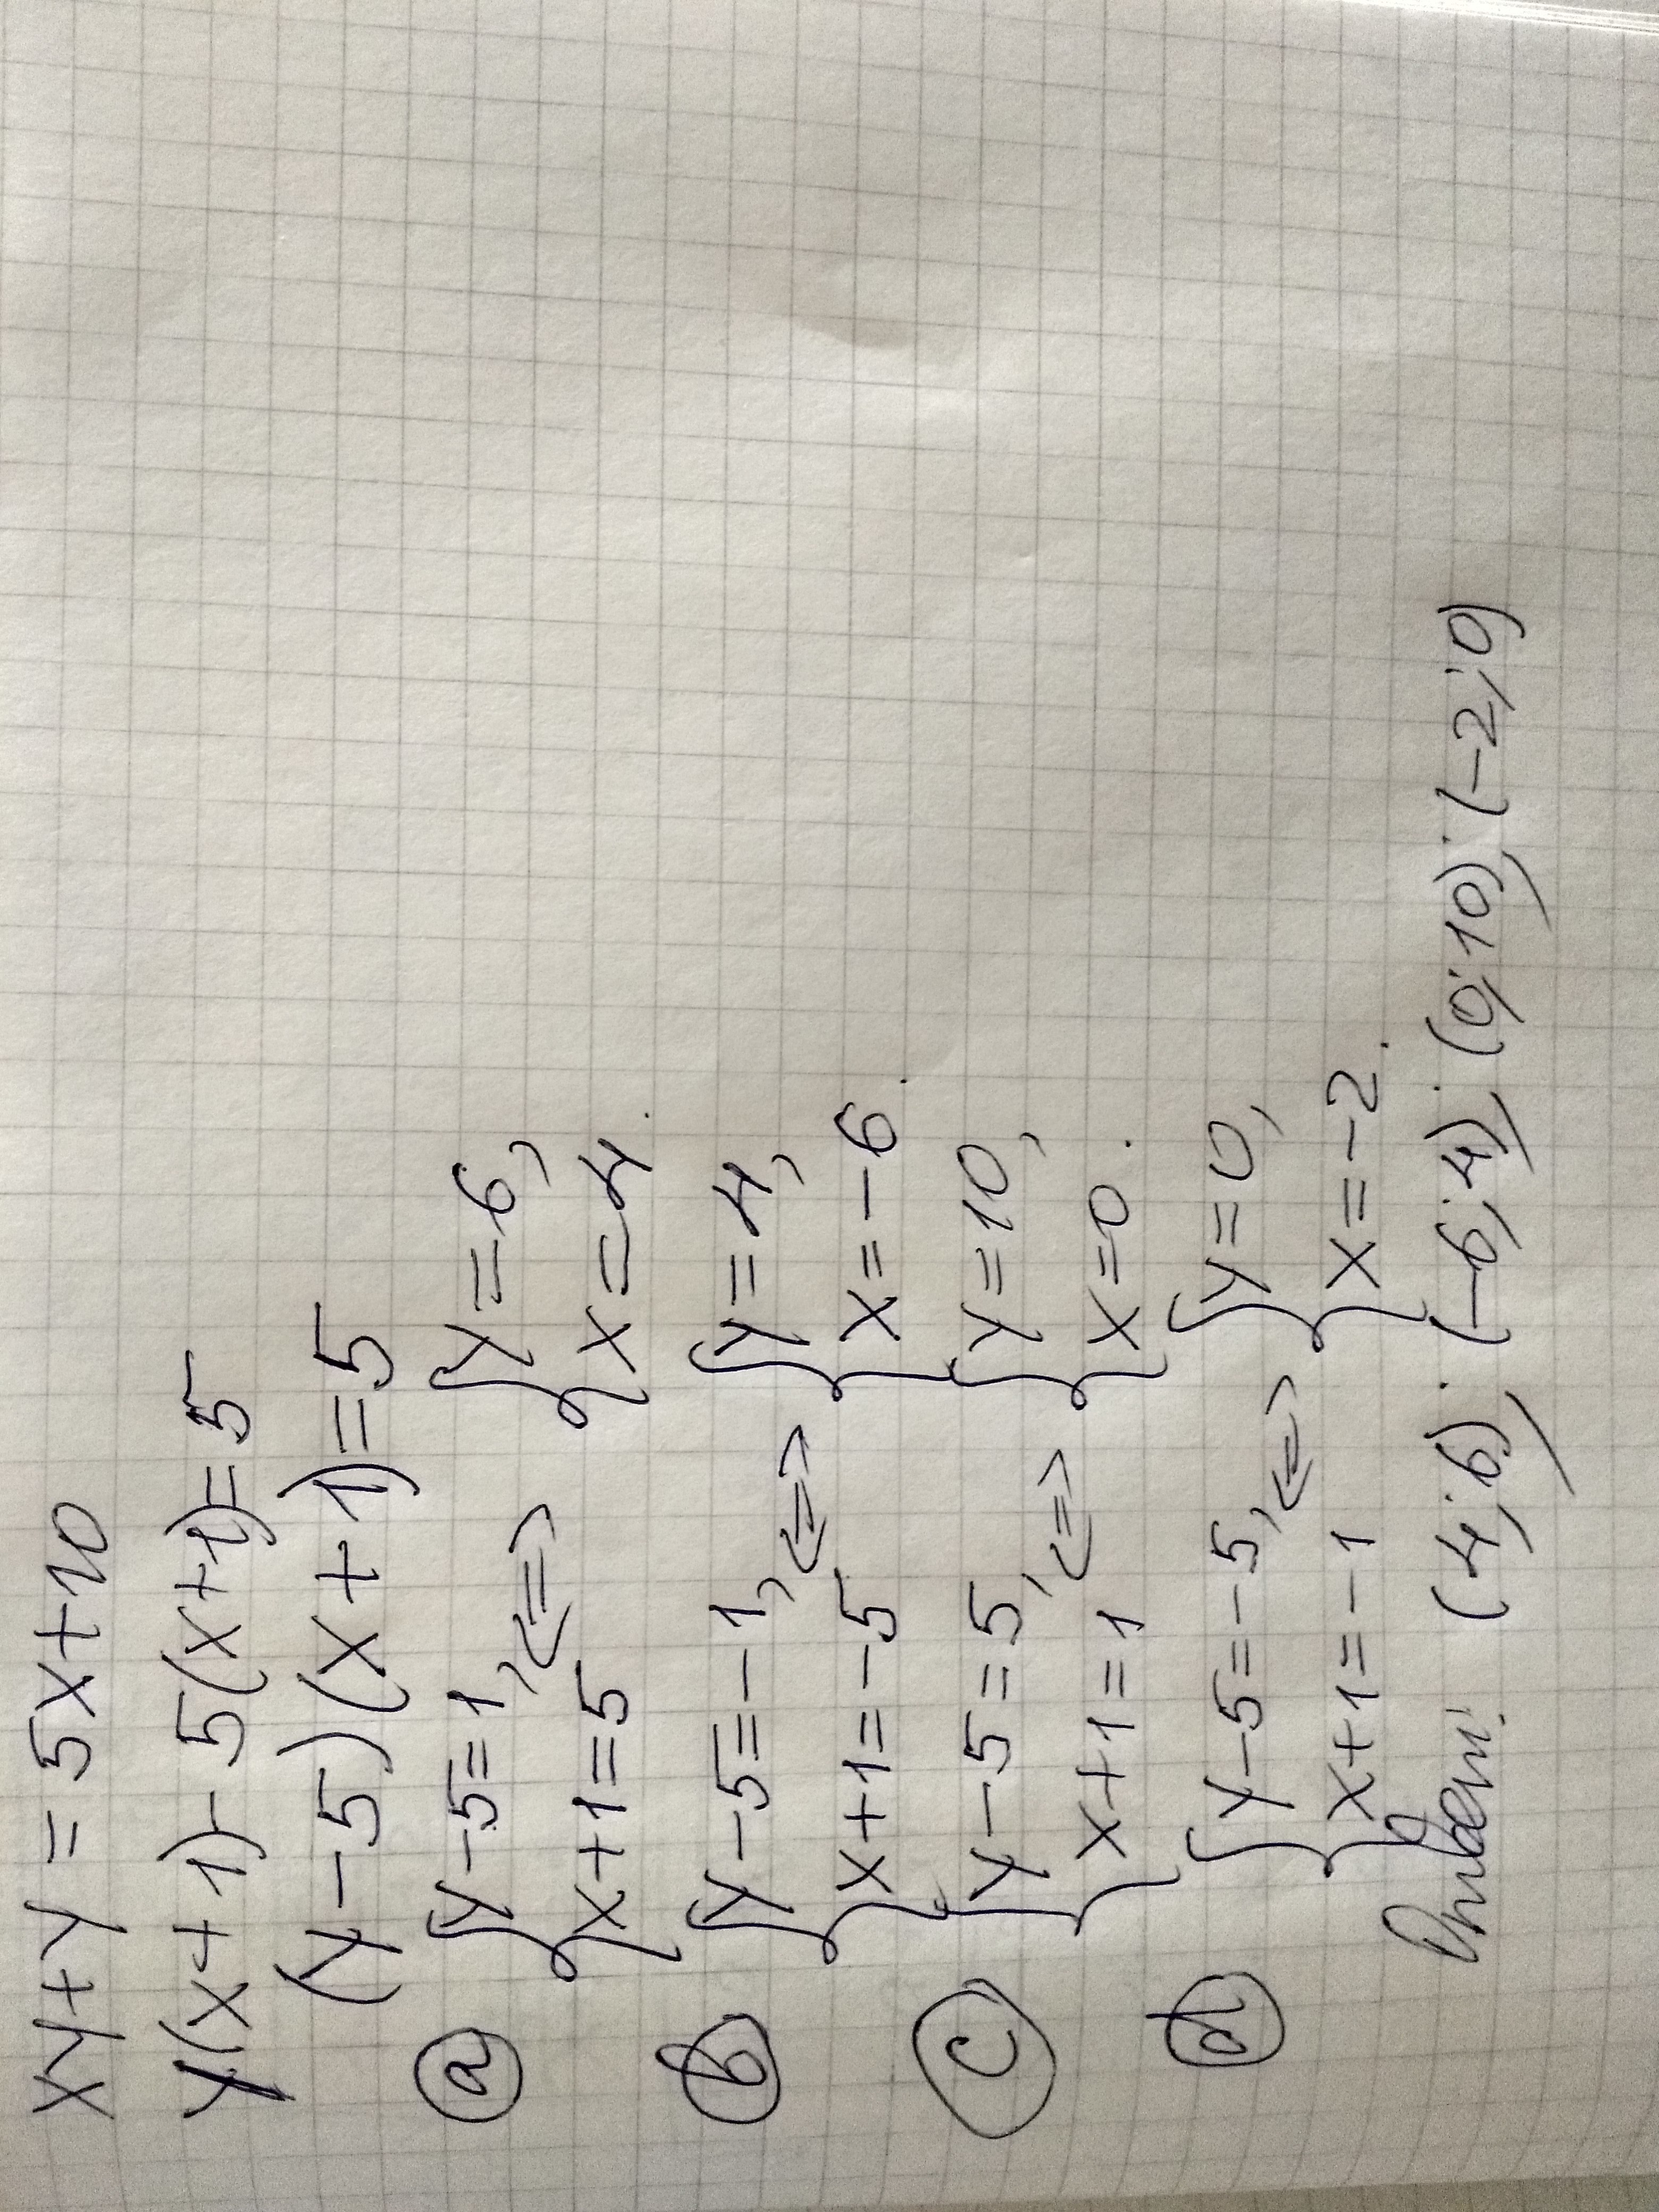 xy+y = 5x+10
y(x+1)-5(x+1)=5
(y-5)(x+1)=5
a) { y-5=1, x+1=5 <=> { y=6, x=4.
b) { y-5=-1, x+1=-5 <=> { y=4, x=-6.
c) { y-5=5, x+1=1 <=> { y=10, x=0.
d) { y-5=-5, x+1=-1 <=> { y=0, x=-2.
Ответ: (4;6); (-6;4); (0;10); (-2;0)